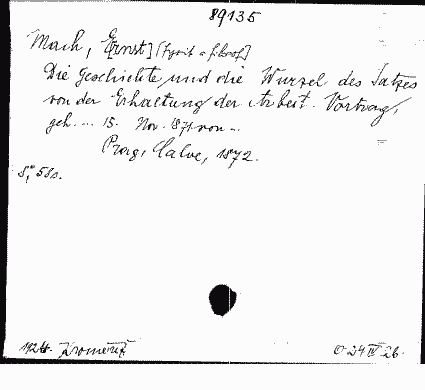 89135
Mach, E[rnst] [fysik a filosof]
Die Geschichte und die Wurzel des Satzes
von der Erhaltung der Arbeit. Vortrag,
geh.... 15. Nov. 1871 von ..
Prag, Calve, 1872.
8°, 58s.
O 24 IV 26